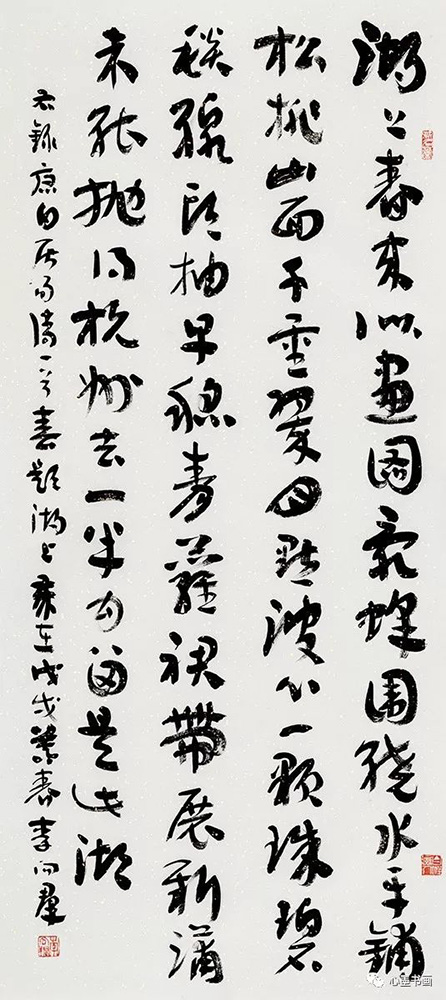 湖上春來似畫圖亂峰圍繞水平鋪
松排山面千重翠月點波心一顆珠碧
毯線頭抽早稻青羅裙帶展新蒲
未能抛得杭州去一半勾留是此湖
右錄唐白居易詩一首春題湖上歲在戊戌春李向群
书画